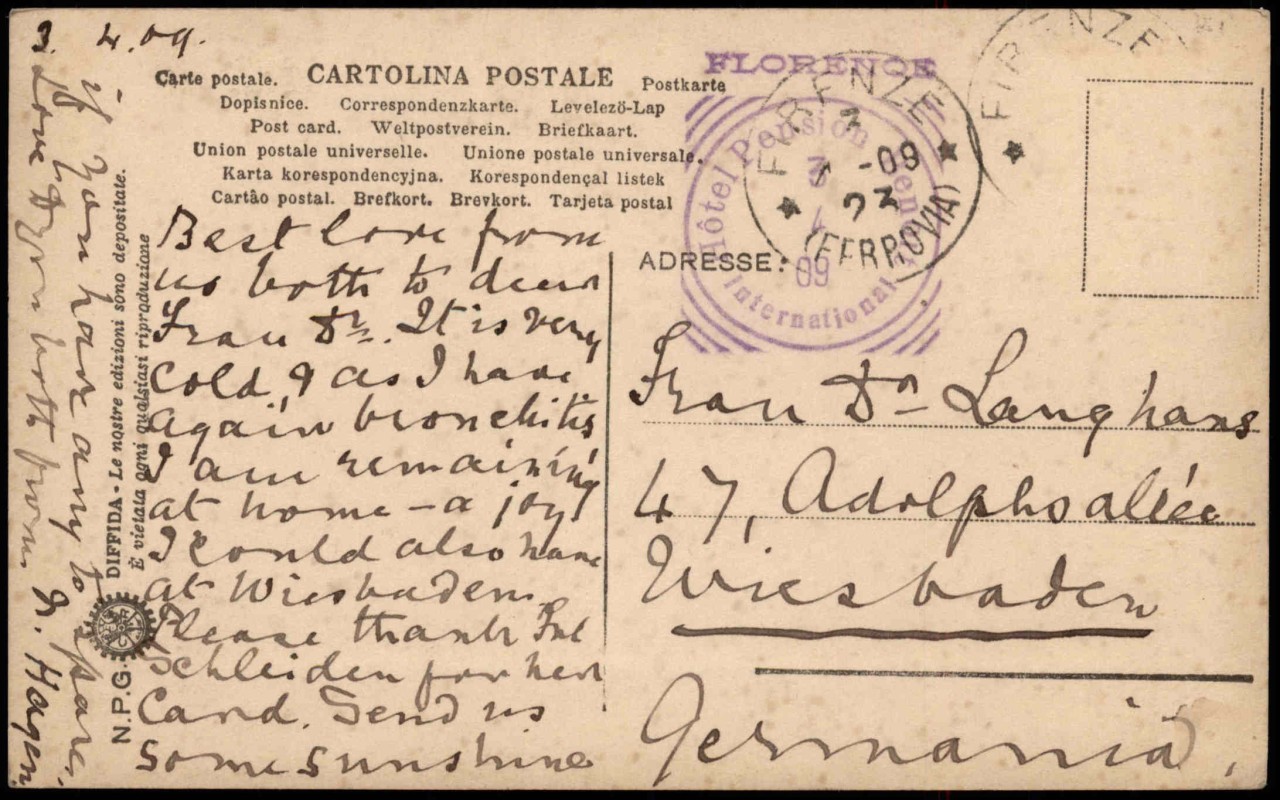 3. 4. 09.
Carte postale. CARTOLINA POSTALE Postkarte
Dopisnice. Correspondenzkarte. Levelezö-Lap
Post card. Weltpostverein. Briefkaart.
Union postale universelle. Unione postale universale.
Karta korespondencyjna. Korespondençal listek
Cartâo postal. Brefkort. Brevkort. Tarjeta postal
Best love from
us both to dear
Frau Dr. It is very
cold, & as I have
again bronchitis
I am remaining
at home – a joy
I could also have
at Wiesbaden.
Please thank Frl
Schleiden for her
Card. Send us
some sunshine
if you have any to spare.
Love from both from
Hagen.
DIFFIDA - Le nostre edizioni sono depositate.
È vietata ogni qualsiasi riproduzione
N.P.G.
FLORENCE
Hôtel Pension
International
3
4
09
FIRENZE
-09
23
(FERROVIA)
FIRENZE
ADRESSE:
Frau Dr Langhans
47, Adolphsallée
Wiesbaden
Germania.